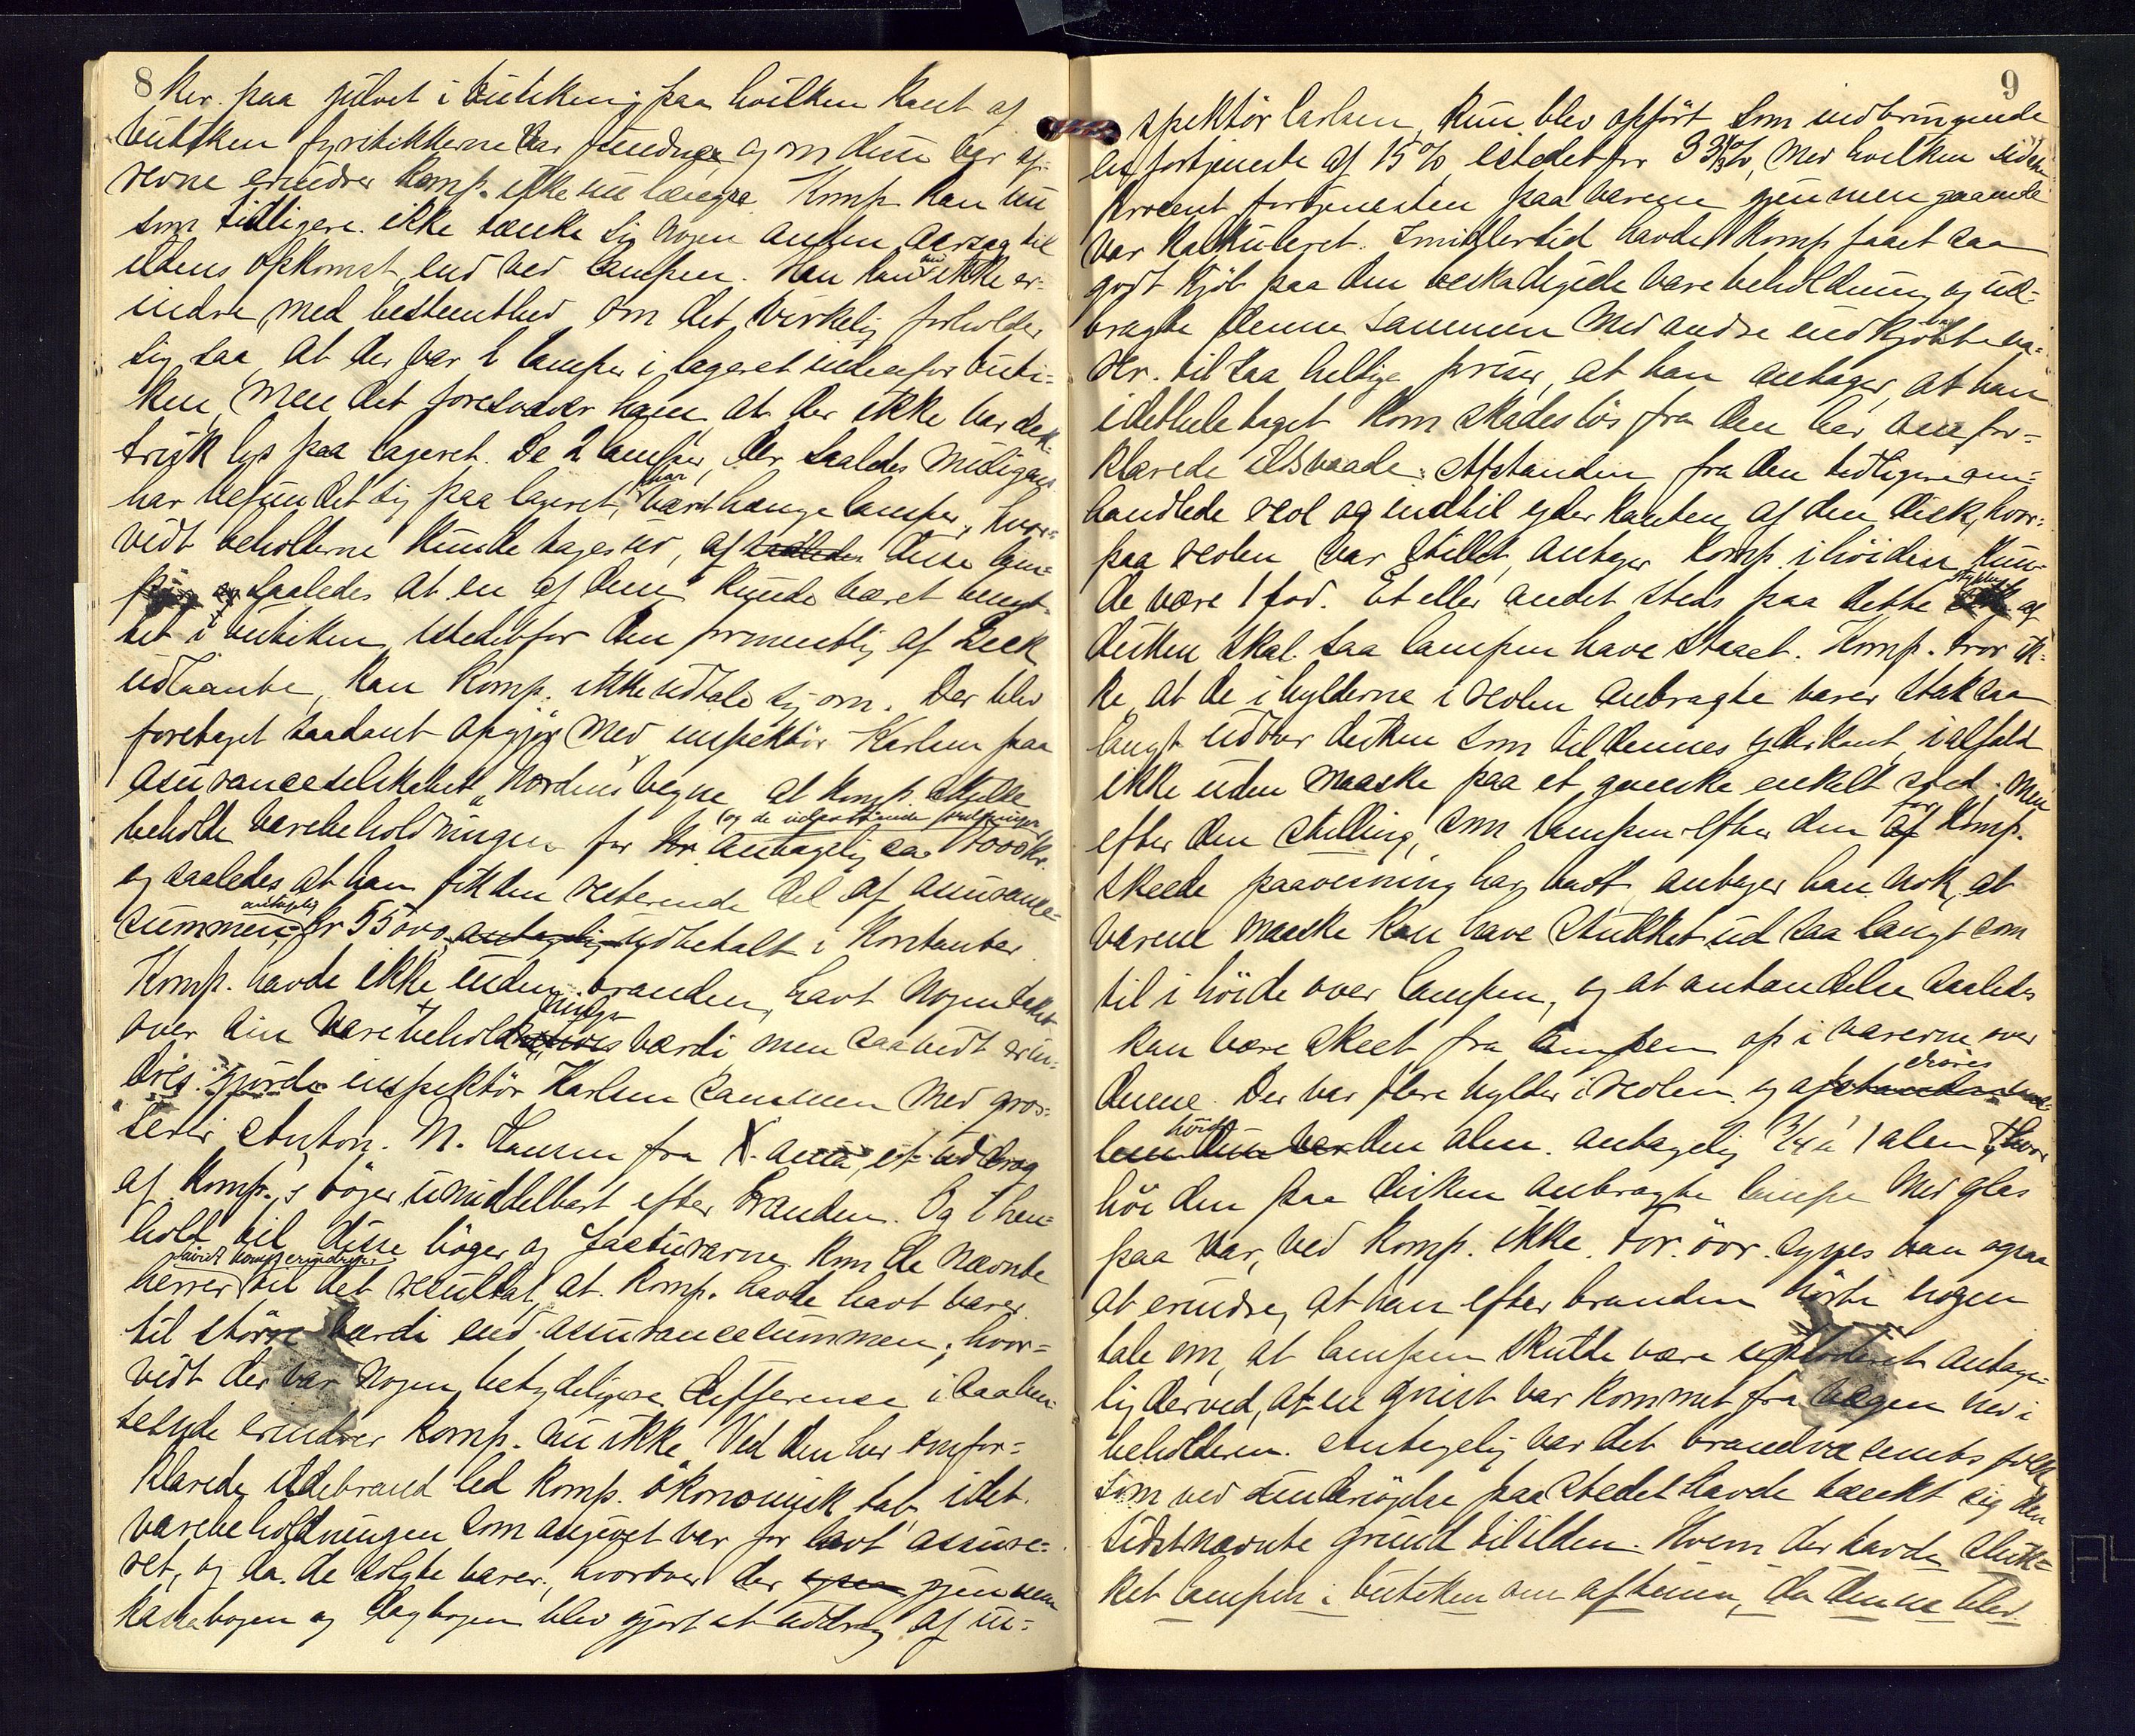 8
ker. paa gulvet i butiken; paa hvilken kant af
butiken fyrstikkerne var fundne og om dem var af-
revne erindrer Komp. ikke nu længre. Komp. kan nu
som tidligere ikke tænke sig nogen anden aarsag til
ildens opkomst end ved lampen. Han kan nu ikke er-
indre med bestemthed om det virkelig forholder
sig saa, at der var 2 lamper i lageret indenfor buti-
ken, men det foresvæver ham at der ikke var elek-
trisk lys paa lageret. De 2 lamper, der saaledes muligens
har befundet sig paa lageret, har været hængelamper, hvor-
vidt beholderne kunde tages ud, af saaledes disse lam-
per og saaledes at en af dem kunde været benyt-
tet i butiken istedetfor den formentlig af Beck
udlaante, kan Komp. ikke udtale sig om. Der blev
foretaget saadant opgjør med inspektør Karlsen paa
assuranceselskabet "Nordens" vegne, at Komp. skulde
beholde varebeholdningen (og de udestaaende fordringer) for kr. antagelig ca 17000 kr.
og saaledes at han fik den resterende del af assurance-
summen, antagelig kr 55000, antagelig udbetalt i kontanter.
Komp. havde ikke inden branden havt nogen takst
over sin varebeholdnings værdi men saavidt erin-
dres gjorde inspektør Karlsen sammen med gros-
serer Anton. M. Hansen fra X.ania et uddrag
af Komp.'s bøger umiddelbart efter branden. Og i hen-
hold til disse bøger og facturaerne kom de nævnte
herrer saavidt komp. erindrer til det resultat, at Komp. havde havt varer
til større værdi end assurancesummen; hvor-
vidt der var nogen betydeligere differense i saa hen-
seende erindrer Komp. nu ikke. Ved den her omfor-
klarede ildebrand led Komp. økonomisk tab, idet
varebeholdningen som angivet var for lavt assure-
ret, og da de solgte varer, hvorover der gjennem
kassabogen og dagbogen blev gjort et uddrag af in-
9
spektør Carlsen, kun blev opført som indbringende
en fortjeneste af 15 % istedetfor 33 1/3 %, med hvilken siden
procent fortjenesten paa varerne gjennemgaaende
var kalkuleret. Imidlertid havde Komp. faaet saa
godt kjøb paa den beskadigede varebeholdning og ud-
bragte denne sammen med andre indkjøbte va-
rer til saa heldige priser, at han antager, at han
idethele taget kom skadesløs fra den her omfor-
klarede ildsvaade. Afstanden fra den tidligere om-
handlede reol og indtil yderkanten af den disk, hvor-
paa reolen var stillet, antager Komp. i høiden kun-
de være 1 fod. Et eller andet steds paa dette stykke af
disken skal saa lampen have staaet. Komp. tror ik-
ke, at de i hylderne i reolen anbragte varer stak saa
langt udover disken som til dennes yderkant, ialfald
ikke uden maaske paa et ganske enkelt sted; men
efter den stilling, som lampen efter den af for Komp.
skeede paavisning har havt, antager han nok, at
varene maaske kan have stukket ud saa langt som
til i høide over lampen, og at antændelse saaledes
kan være skeet fra lampen op i varerne over
denne. Der var flere hylder i reolen og
høide den alen. antagelig 3/4 à 1 alen. Hvor
høi den paa disken anbragte lampe med glas
paa var, ved Komp. ikke. For øvr. synes han ogsaa
at erindre, at han efter branden hørte nogen
tale om, at lampen skulde være exploderet antage-
lig derved, at en gnist var kommet fra vægen ned i
beholderen. Antagelig var det brandvæsenets folk,
som ved undersøgelse paa stedet havde tænkt sig den
sidstnævnte grund til ilden. Hvem der havde sluk-
ket lampen i butiken om aftenen, da denne blev